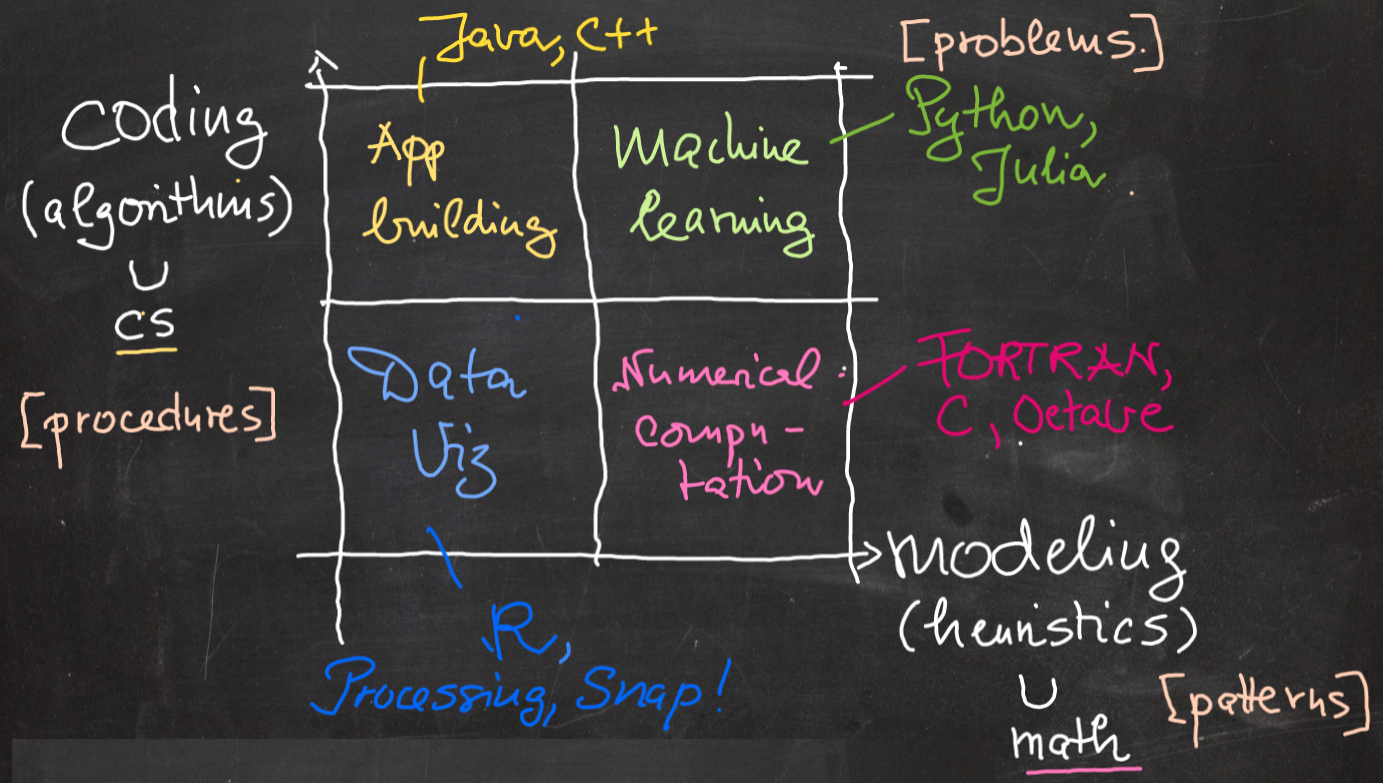 Java, C++
[problems.]
Coding
(algorithms)
∪
CS
[procedures]
App
building
Machine
learning
Python,
Julia
Data
Viz
Numerical
compu-
tation
FORTRAN,
C, Octave
R,
Processing, Snap!
modeling
(heuristics)
∪
math
[patterns]